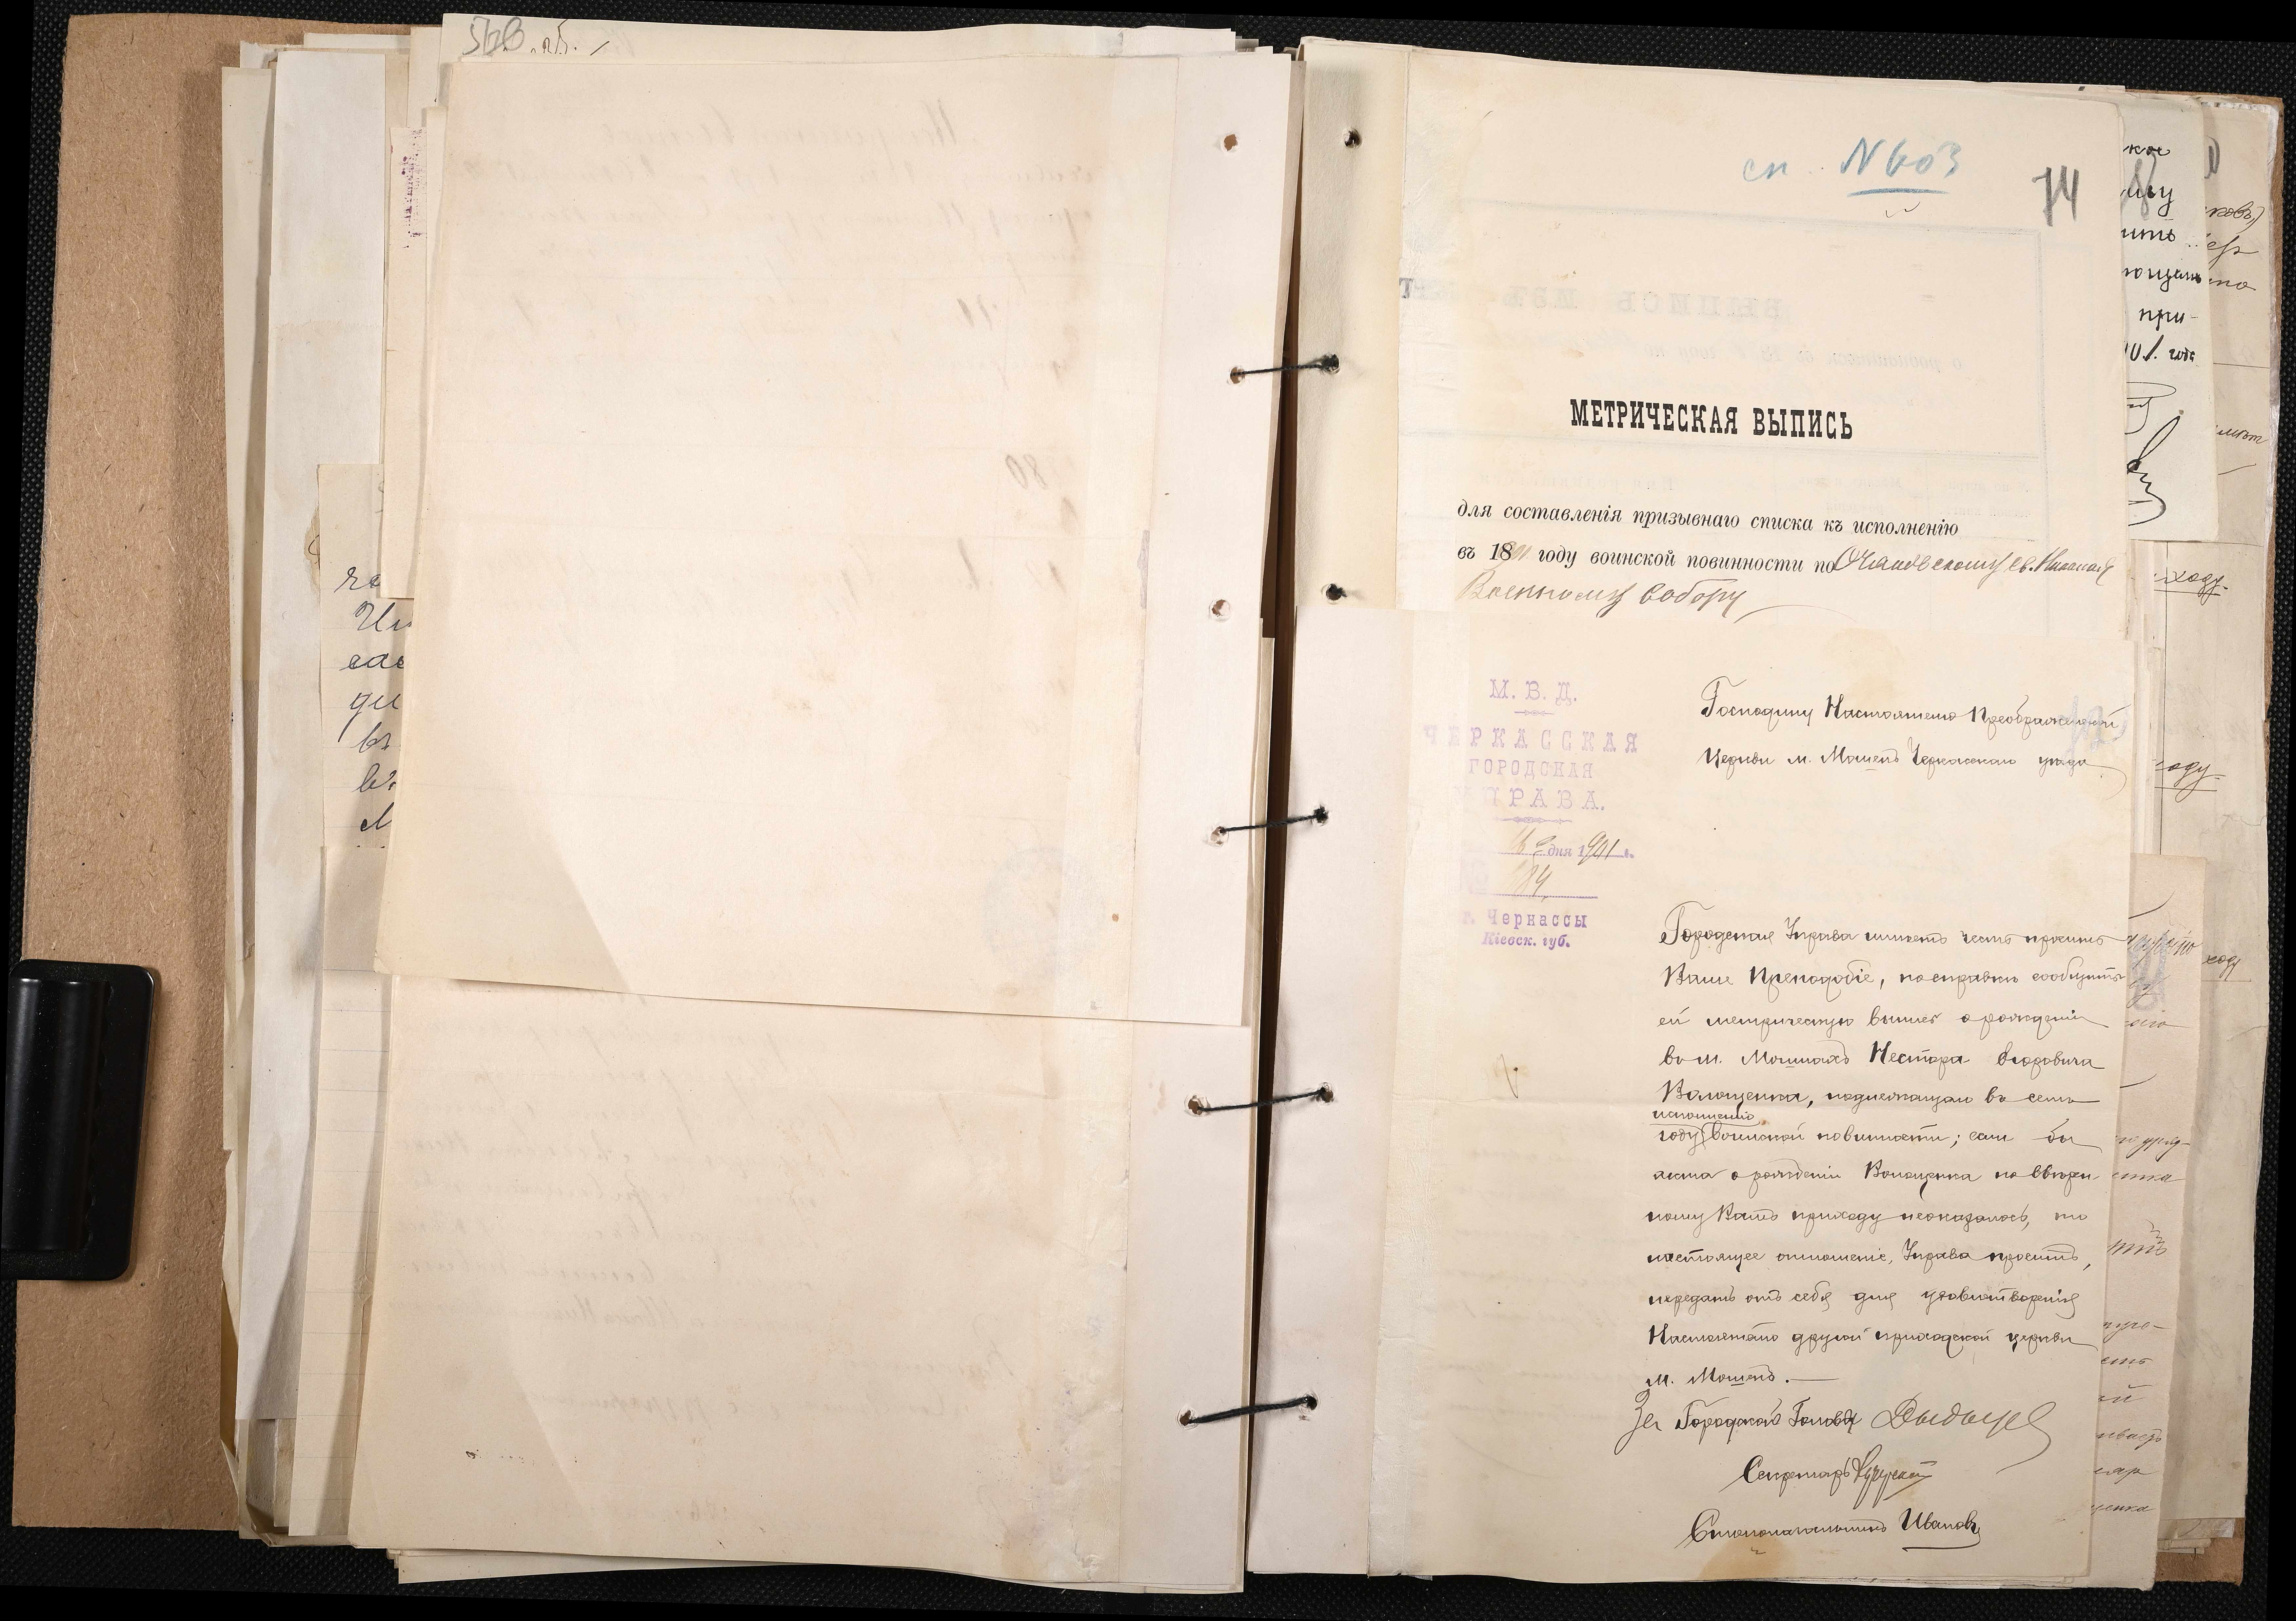 сп. N 603
74
МЕТРИЧЕСКАЯ ВЫПИСЬ
для составленія призывнаго списка къ исполненію
въ 1801 году воинской повинности по Очаковскому св. Николая
Военному Собору
М. В. Д.
ЧЕРКАССКАЯ
ГОРОДСКАЯ
УПРАВА.
16 дня 1901 г.
184
г. Черкассы
Кіевск. губ.
Господину Настоятелю Преображенской
Церкви м. Мошенъ Черкасскаго уезда
Городская Управа имеетъ честь просить
Ваше Преподобіе, по справке сообщить
ей метрическую выпись о рожденіи
въ м. Мошнахъ Нестора Ѳедоровича
Волощенка, подлежащаго въ семъ
исполненію
году воинской повинности; если бы
акта о рожденіи Волощенка по ввѣрен-
ному Вамъ приходу неоказалось, то
настоящее отношеніе, Управа проситъ,
передать отъ себя для удовлетворенія
Настоятелю другой приходской церкви
м. Мошенъ.
За Городской Голова
Секретарь
Столоначальникъ Ивановъ
кое
при-
ходу
ходу